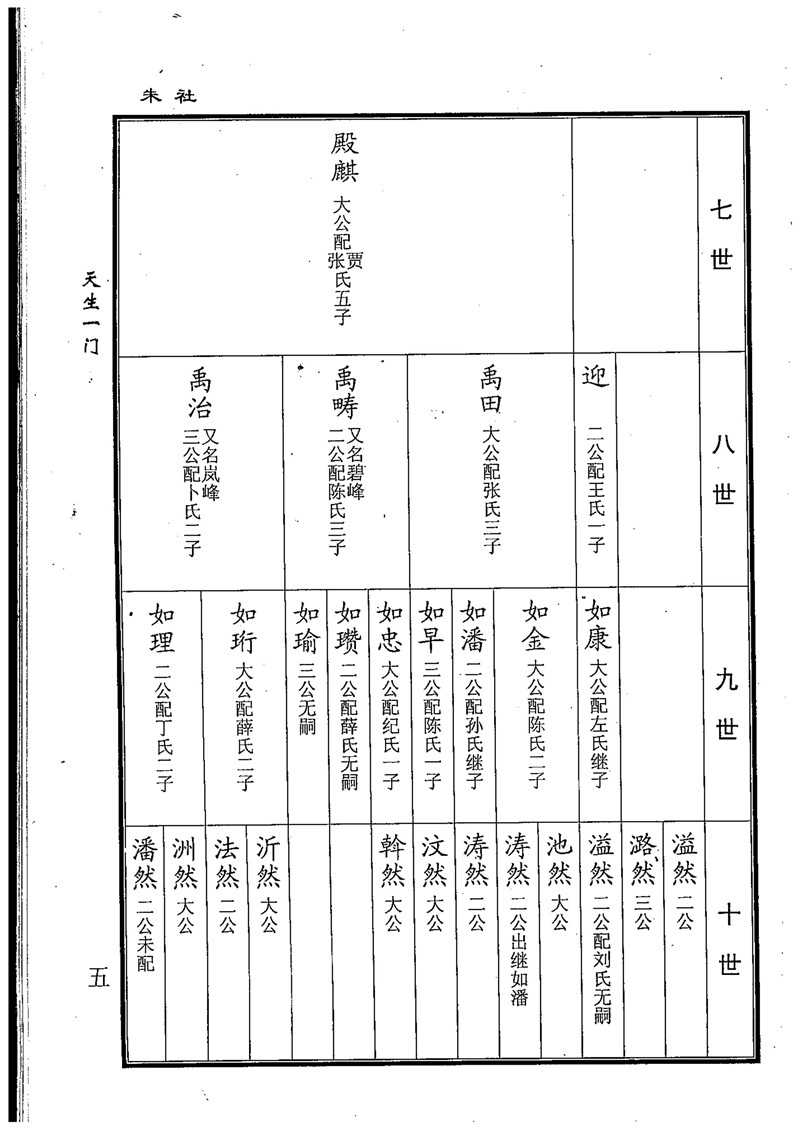 朱社
天生一门
五
七世
殿麒
大公配贾张氏五子
八世
迎
二公配王氏一子
禹田
大公配张氏三子
禹畴
又名碧峰
二公配陈氏三子
禹治
又名岚峰
三公配卜氏二子
九世
如康
大公配左氏继子
如金
大公配陈氏二子
如潘
二公配孙氏继子
如早
三公配陈氏一子
如忠
大公配纪氏一子
如瓒
二公配薛氏无嗣
如瑜
三公无嗣
如珩
大公配薛氏二子
如理
二公配丁氏二子
十世
溢然
二公
潞然
三公
溢然
二公配刘氏无嗣
池然
大公
涛然
二公出继如潘
涛然
二公
汶然
大公
斡然
大公
沂然
大公
法然
二公
洲然
大公
潘然
二公未配